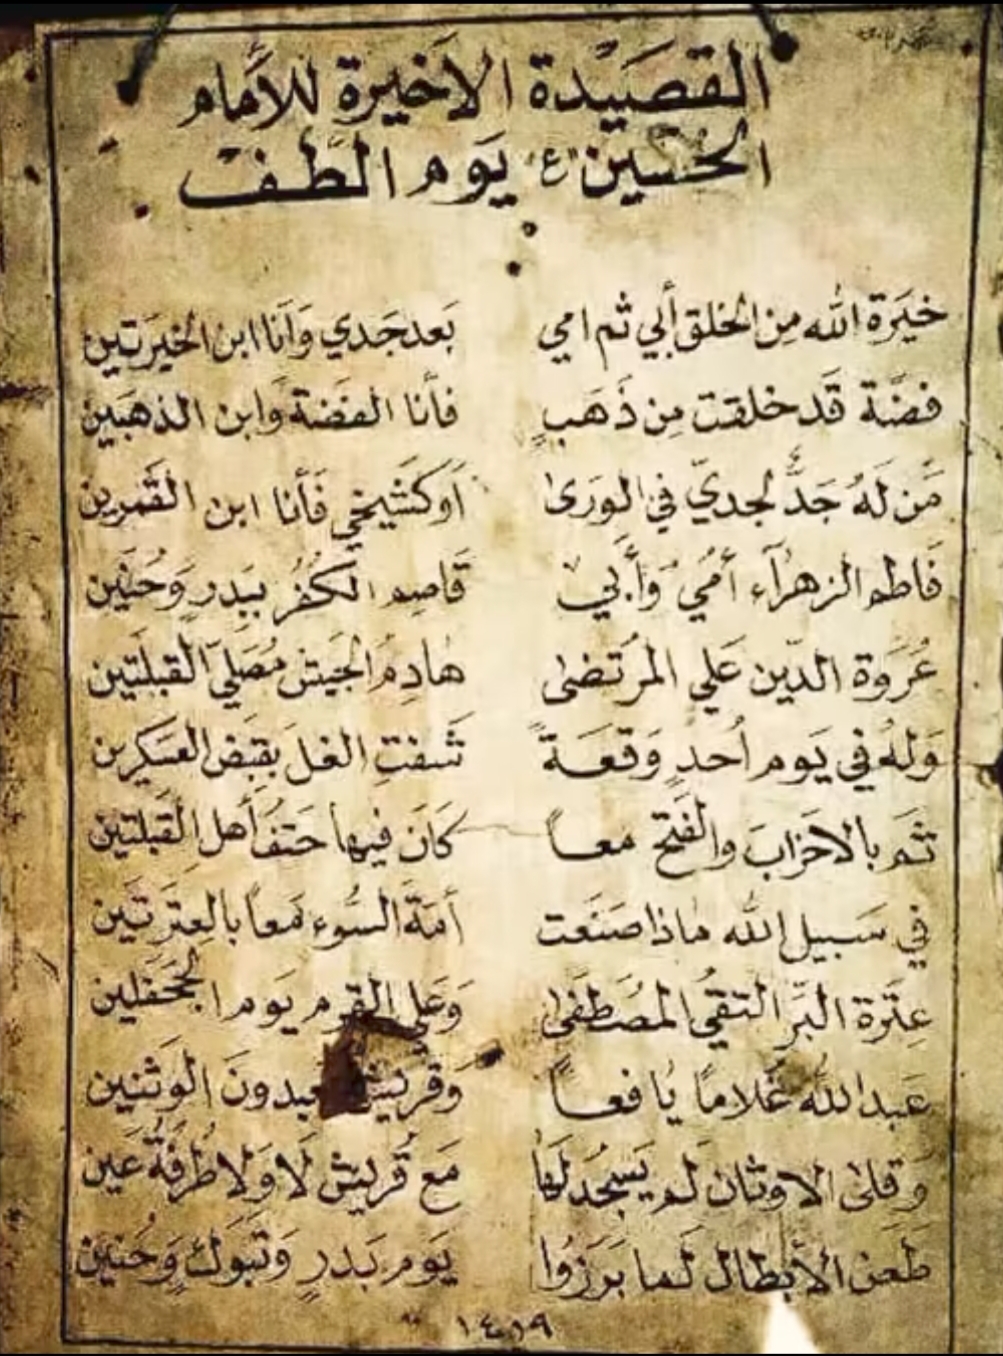 القصيدة الاخيرة للأمام
الحسين "ع" يوم الطف
خيَرة الله مِن الخلق أبي ثم امي بَعد جَدي وَانا ابن الخيرَتين
فضَّة قَد خلقت مِن ذَهَبٍ فأنا الفضَة وَابن الذهبَين
مَن لَهُ جَدٌّ لجدّي في الوَرى اَوكَشَيخي فَأنا ابن القمَرين
فَاطم الزهرَآء أمُي وَأبي قَاصِم الكُفُر بِبَدرٍ وَحُنَين
عُروَة الدّين عَلي المرُتضى هَادِمُ الجَيش مُصَلّي القبلتَين
وَلهُ في يَوم اُحدٍ وَقعَةً شَفتِ الغلَ بقبَض العسَكرين
ثم بالاحَزابَ والفَتح معاً كَانَ فيها حَتفُ أهل القَبلتَين
في سَبيل الله ماذا صَنَعَت أمَة السُوء مَعاً بالعِترَتَين
عِترَة البَرِّ التقيُ المصُطَفى وَعَلي القرم يَوم الجَحفَلين
عَبد اللهُ غُلامًا يافعاً وَقرُيش يعبدونَ الوَثنَين
وَقلى الاوثان لَم يَسجُد لَها مَع قُريش لَا وَلا طَرفَةُ عَين
طَعَن الأبطال لَما بَرَزُوا يَوم بَدرٍ وَتَبوك وَحُنين
١٤١٩